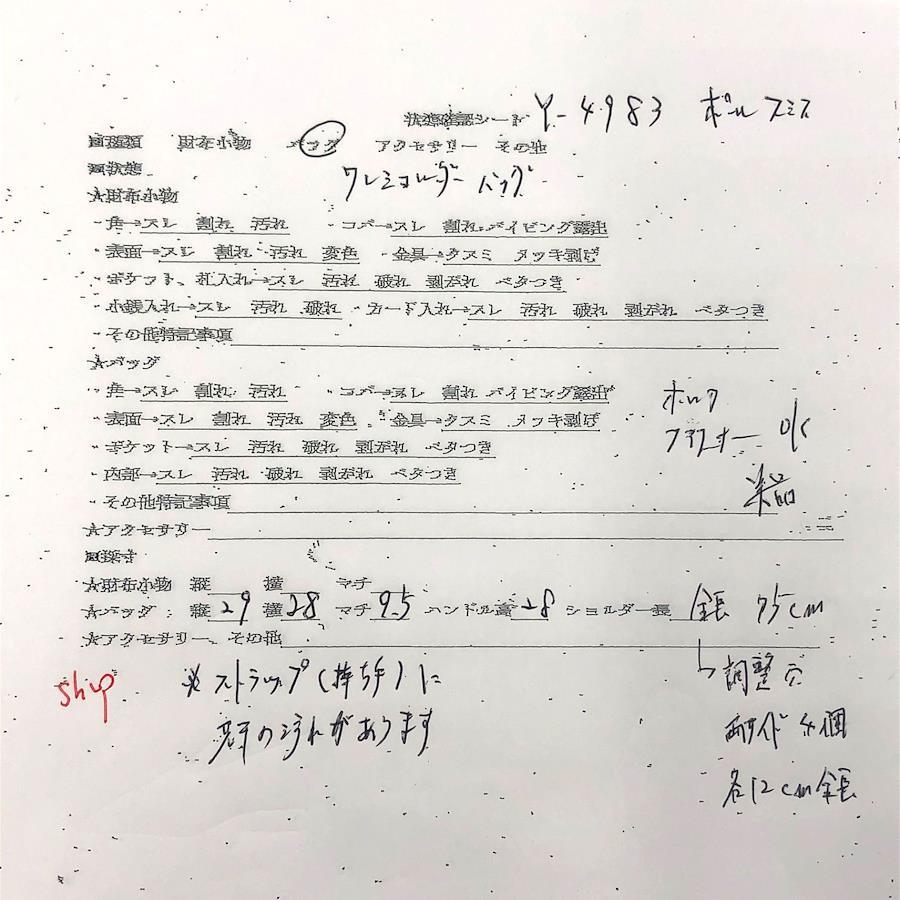 状態確認シート Y-4983 ポールスミス
■種類 財布小物 バッグ アクセサリー その他
■状態 ワンショルダーバッグ
★財布小物
・角→スレ 割れ 汚れ ・コバ→スレ 割れ パイピング露出
・表面→スレ 割れ 汚れ 変色 ・金具→クスミ メッキ剥げ
・ポケット、札入れ→スレ 汚れ 破れ 剥がれ ベタつき
・小銭入れ→スレ 汚れ 破れ ・カード入れ→スレ 汚れ 破れ 剥がれ ベタつき
・その他特記事項
★バッグ
・角→スレ 割れ 汚れ ・コバ→スレ 割れ パイピング露出
・表面→スレ 割れ 汚れ 変色 ・金具→クスミ メッキ剥げ
・ポケット→スレ 汚れ 破れ 剥がれ ベタつき
・内部→スレ 汚れ 破れ 剥がれ ベタつき
・その他特記事項
ホック
ファスナー OK
美品
★アクセサリー
■採寸
★財布小物 縦 横 マチ
★バッグ:縦 29 横 28 マチ 9.5 ハンドル高 28 ショルダー長 全長 75cm
★アクセサリー、その他
ship ※ストラップ(持ち手)に
の汚れがあります
調整穴
両サイド 4個
各12cm全長